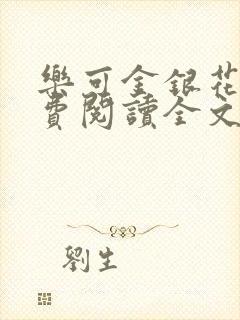 樂可金銀花
費閱讀全文
劉生